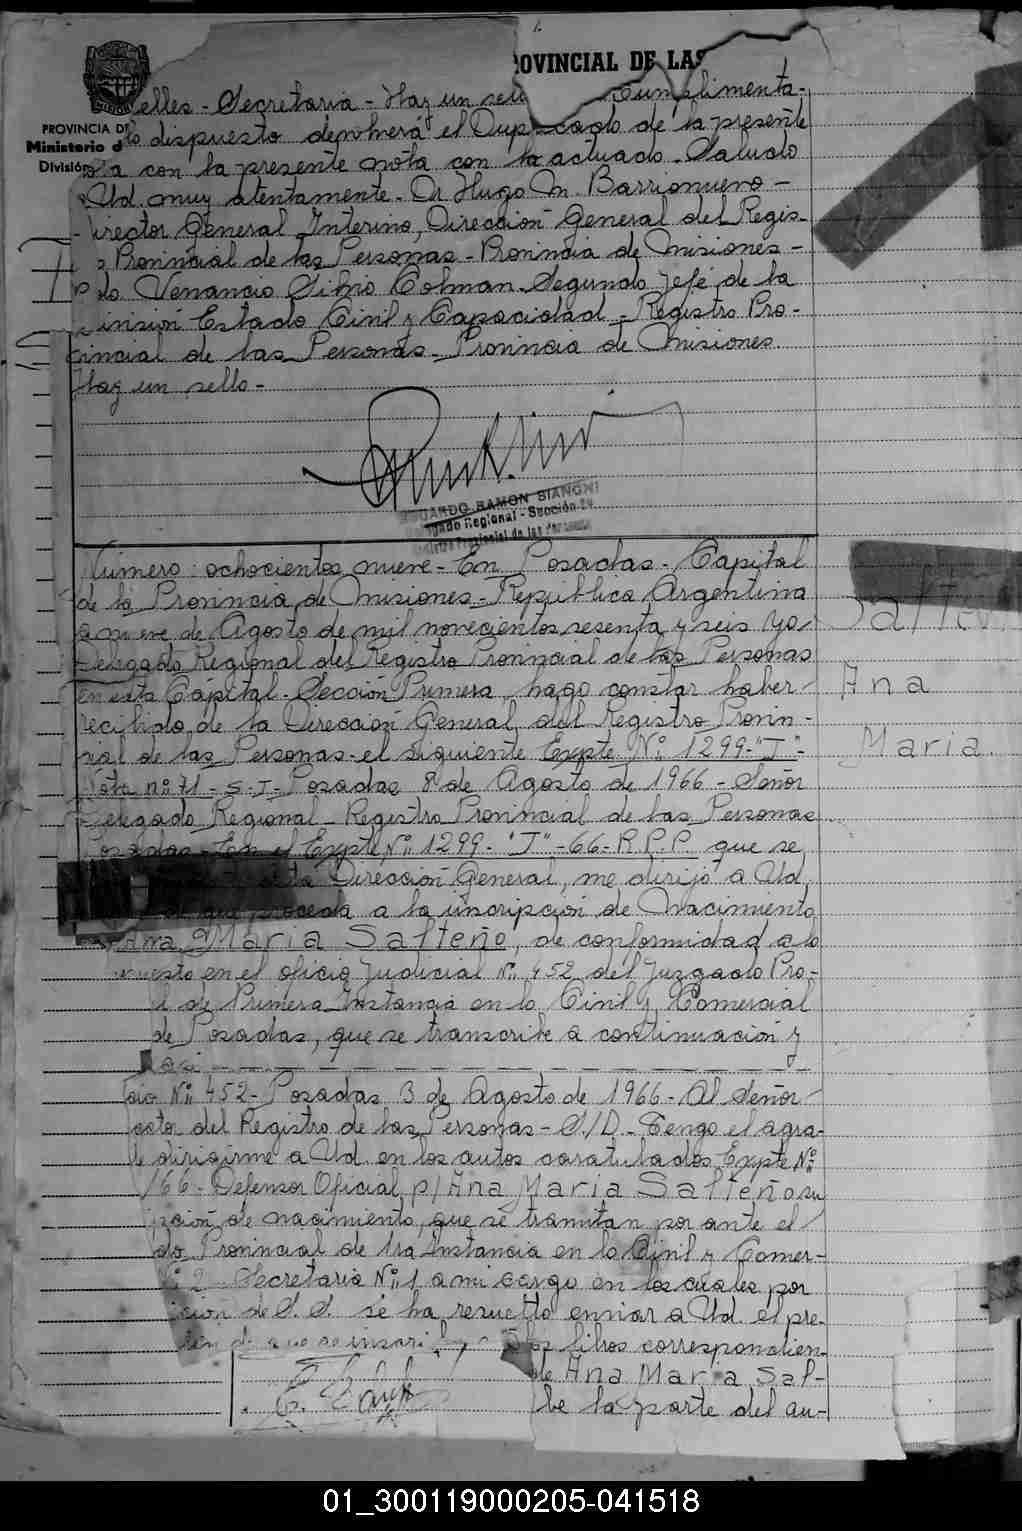 OVINCIAL DE LAS
PROVINCIA DE
Ministerio d
División
elles - Secretaria - Hay un sello Cumplimenta-
lo dispuesto devolverá el Duplicado de la presente
a con la presente nota con lo actuado - Saludo
Ud. muy atentamente - Dr Hugo M. Barrionuevo -
Director General Interino, Dirección General del Regis-
Provincial de las Personas - Provincia de Misiones -
do Venancio Silvio Colman - Segundo Jefe de la
División Estado Civil y Capacidad - Registro Pro-
vincial de las Personas - Provincia de Misiones
Hay un sello -
EDUARDO RAMON SIANONI
Delegado Regional - Sección
Registro Provincial de las Personas
Número: ochocientos nueve - En Posadas - Capital
de la Provincia de Misiones - República Argentina
a nueve de Agosto de mil novecientos sesenta y seis Yo
Delegado Regional del Registro Provincial de las Personas
en esta Capital - Sección Primera, hago constar haber
recibido de la Dirección General del Registro Provin-
cial de las Personas - el siguiente Expte Nº 1299-"J"-
Nota nº 71 - S - I - Posadas 8 de Agosto de 1966 - Señor
Delegado Regional - Registro Provincial de las Personas
Posadas - En el Expte Nº 1299 - "J" - 66 - R.P.P. que se
esta Dirección General, me dirijo a Ud.
que proceda a la inscripción de Nacimiento
Ana Maria Salteño, de conformidad a lo
uesto en el oficio Judicial Nº 452 del Juzgado Pro-
l de Primera Instancia en lo Civil y Comercial
de Posadas, que se transcribe a continuación y
Salte
Ana
Maria.
cio Nº 452 - Posadas 3 de Agosto de 1966 - Al Señor
ector del Registro de las Personas - S/D - Tengo el agra-
de dirigirme a Ud. en los autos caratulados Expte Nº
/66 - Defensor Oficial p/ Ana Maria Salteño su
ipción de nacimiento, que se tramitan por ante el
do Provincial de 1ra Instancia en lo Civil y Comer-
Nº 2 - Secretaria Nº 1 a mi cargo en los cuales por
ición de S. S. se ha resuelto enviar a Ud. el pre-
que se inscriba en los libros correspondien-
de Ana Maria Sal-
be la parte del au-
01_300119000205-041518